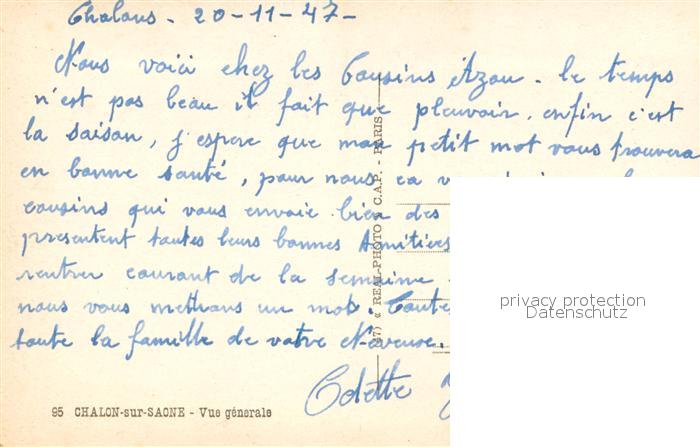 Chalons - 20-11-47-
Nous voici chez les Cousins Azou - le temps
n'est pas beau il fait que pleuvoir. enfin c'est
la saison, j'espere que mon petit mot vous trouvera
en bonne santé, pour nous ca
cousins qui vous envoie bien des
presentent toutes leurs bonnes Amitiés
rentrer courant de la semaine
nous vous mettrons un mot. Toute
toute la famille de votre Niveuse.
Odette
95 CHALON-sur-SAONE - Vue générale
« REAL-PHOTO » C.A.P. - PARIS
privacy protection
Datenschutz